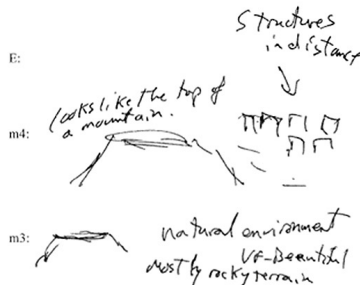 Structures
in distance
E:
looks like the top of
a mountain.
m4:
m3:
natural environment
VF-Beautiful
mostly rocky terrain